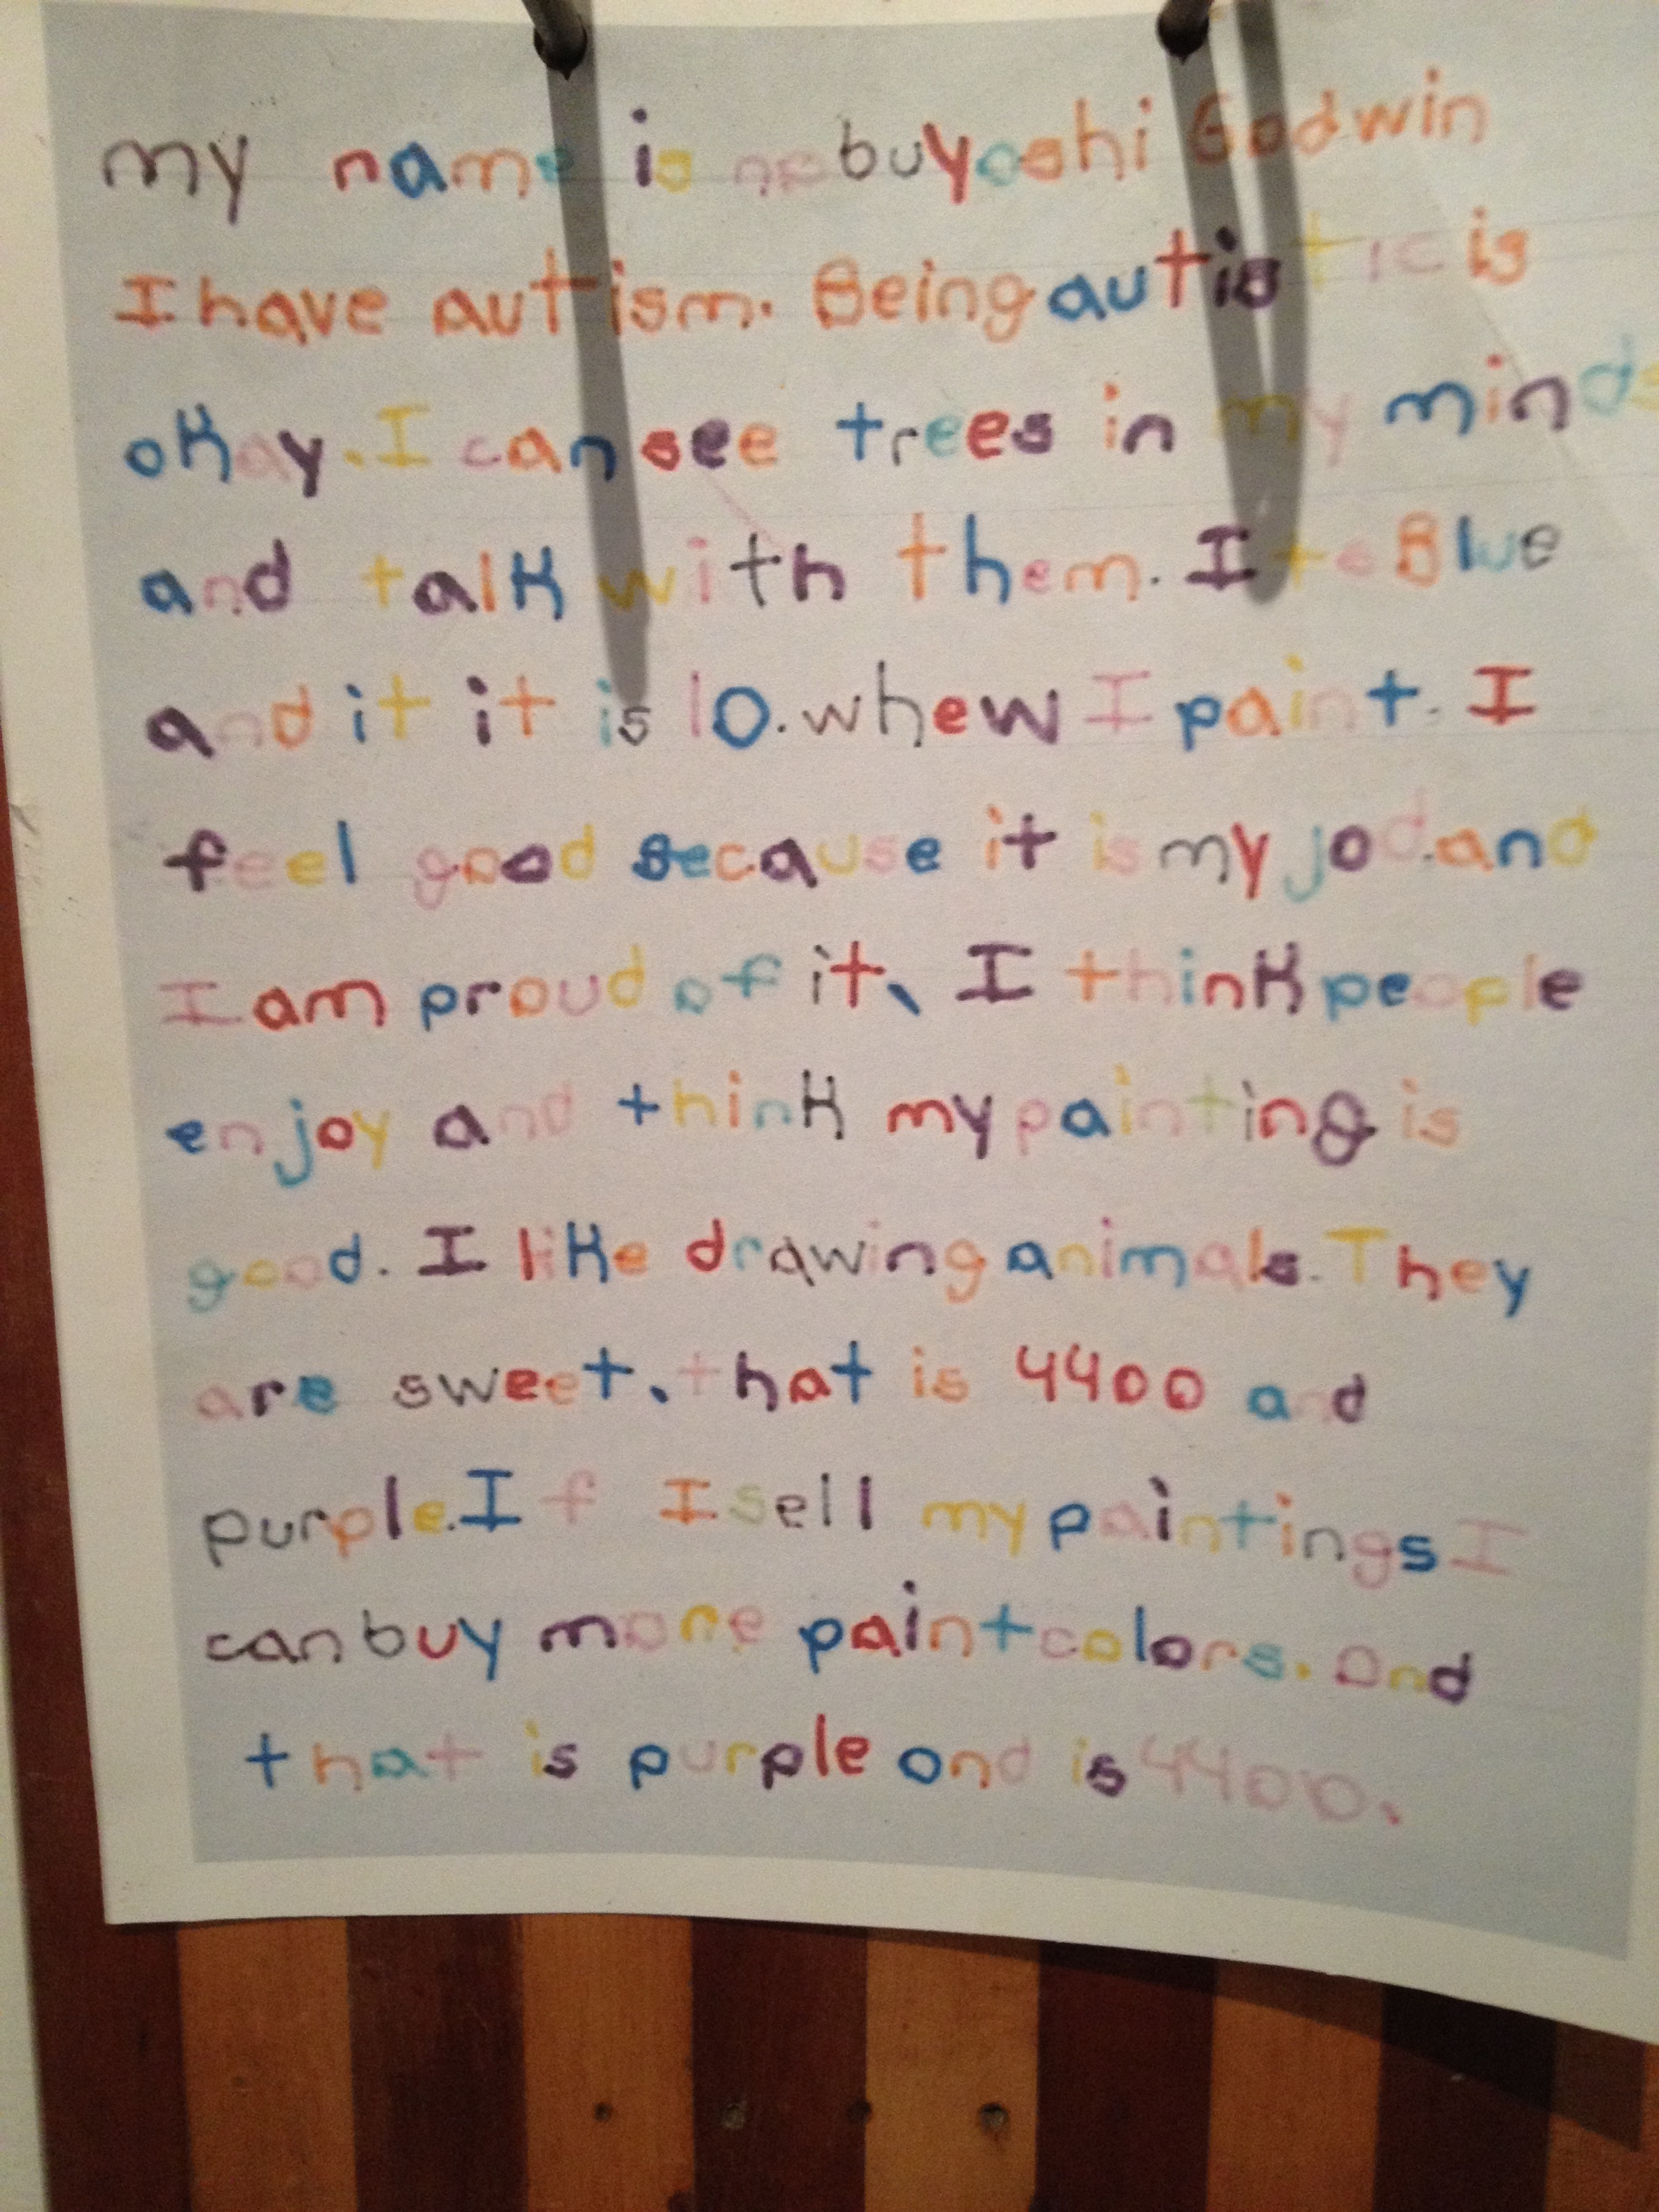 my name is nobuyoshi Godwin
I have autism. Being autistic is
okay. I can see trees in my minds
and talk with them. Its Blue
and it it is 10. whew I paint. I
feel good Because it is my jod. and
I am proud of it、 I think people
enjoy and think my painting is
good. I like drawing animals. They
are sweet、that is 4400 and
purple. If I sell my paintings I
can buy more paint colors. and
that is purple ond is 4400、